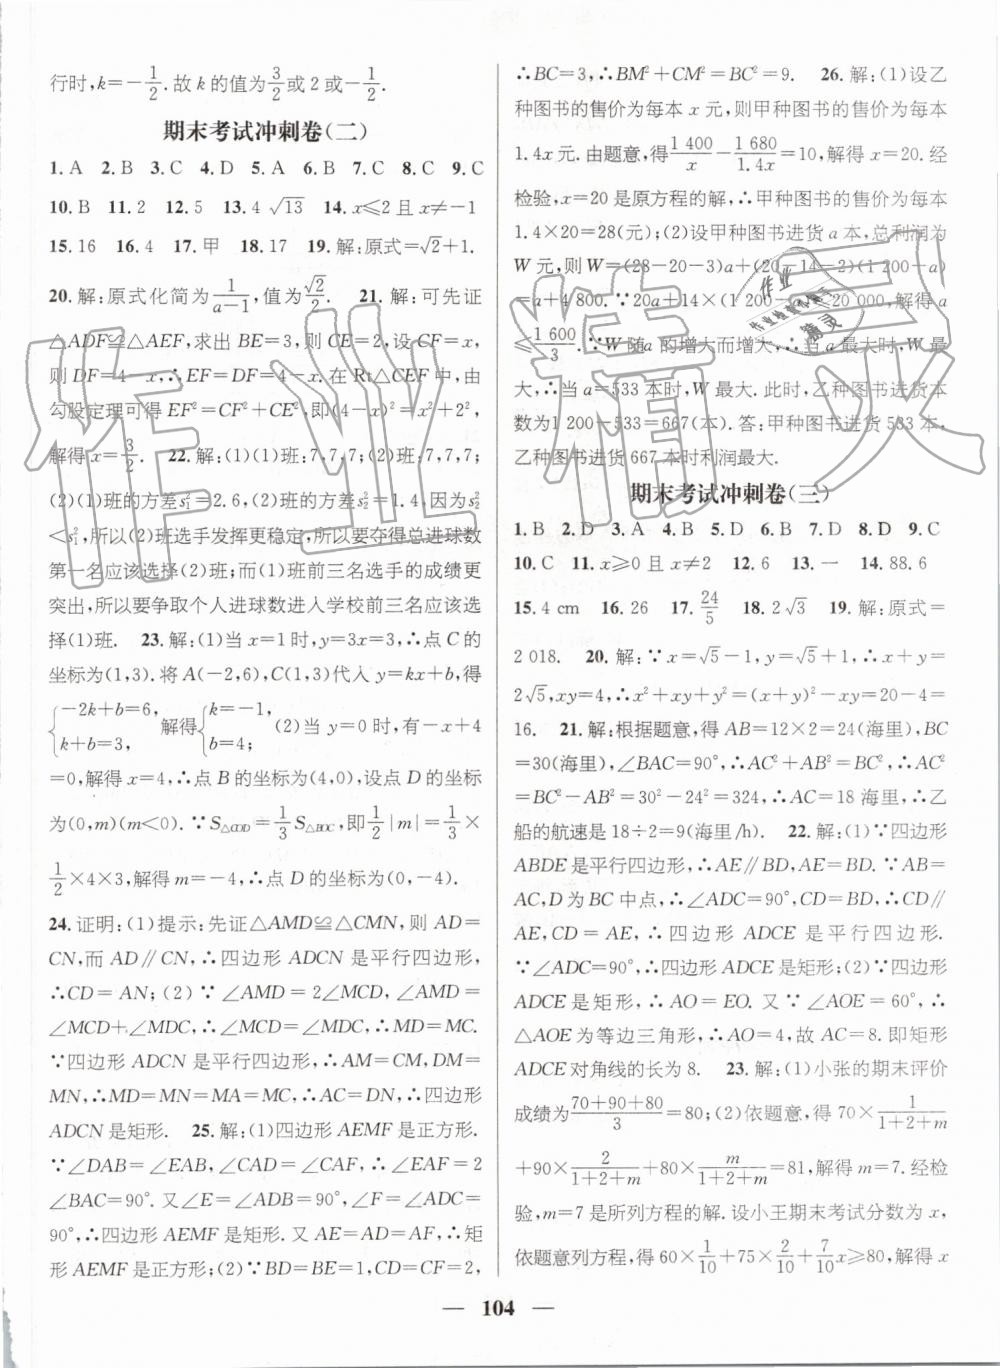 行时,k=-1/2.故k的值为3/2或2或-1/2.
期末考试冲刺卷(二)
1.A 2.B 3.C 4.D 5.A 6.B 7.C 8.C 9.C
10.B 11.2 12.5 13.4 √13 14.x≤2且x≠-1
15.16 16.4 17.甲 18.17 19.解:原式=√2+1.
20.解:原式化简为1/(a-1),值为√2/2. 21.解:可先证
△ADF≌△AEF,求出BE=3,则CE=2,设CF=x,
则DF=4-x,∴EF=DF=4-x.在Rt△CEF中,由
勾股定理可得EF²=CF²+CE²,即(4-x)²=x²+2²,
解得x=3/2. 22.解:(1)(1)班:7,7,7;(2)班:7,7,7;
(2)(1)班的方差s₁²=2.6,(2)班的方差s₂²=1.4,因为s₂²
<s₁²,所以(2)班选手发挥更稳定,所以要夺得总进球数
第一名应该选择(2)班;而(1)班前三名选手的成绩更
突出,所以要争取个人进球数进入学校前三名应该选
择(1)班. 23.解:(1)当x=1时,y=3x=3,∴点C的
坐标为(1,3).将A(-2,6),C(1,3)代入y=kx+b,得
{-2k+b=6, k+b=3, 解得{k=-1, b=4; (2)当y=0时,有-x+4
=0,解得x=4,∴点B的坐标为(4,0),设点D的坐标
为(0,m)(m<0).∵S△COD=1/3 S△BOC,即1/2|m|=1/3×
1/2×4×3,解得m=-4,∴点D的坐标为(0,-4).
24.证明:(1)提示:先证△AMD≌△CMN,则AD=
CN,而AD∥CN,∴四边形ADCN是平行四边形,
∴CD=AN;(2)∵∠AMD=2∠MCD,∠AMD=
∠MCD+∠MDC,∴∠MCD=∠MDC,∴MD=MC.
∵四边形ADCN是平行四边形,∴AM=CM,DM=
MN,∴MD=MN=MA=MC,∴AC=DN,∴四边形
ADCN是矩形. 25.解:(1)四边形AEMF是正方形.
∵∠DAB=∠EAB,∠CAD=∠CAF,∴∠EAF=2
∠BAC=90°.又∠E=∠ADB=90°,∠F=∠ADC=
90°,∴四边形AEMF是矩形.又AE=AD=AF,∴矩
形AEMF是正方形;(2)∵BD=BE=1,CD=CF=2,
∴BC=3,∴BM²+CM²=BC²=9. 26.解:(1)设乙
种图书的售价为每本x元,则甲种图书的售价为每本
1.4x元.由题意,得1 400/x-1 680/1.4x=10,解得x=20.经
检验,x=20是原方程的解,∴甲种图书的售价为每本
1.4×20=28(元);(2)设甲种图书进货a本,总利润为
W元,则W=(28-20-3)a+(20-14-2)(1 200-a)
=a+4 800.∵20a+14×(1 200-a)≤20 000,解得a
≤1 600/3.∵W随a的增大而增大,∴当a最大时,W最
大,∴当a=533本时,W最大.此时,乙种图书进货本
数为1 200-533=667(本).答:甲种图书进货533本,
乙种图书进货667本时利润最大.
期末考试冲刺卷(三)
1.B 2.D 3.A 4.B 5.D 6.B 7.D 8.D 9.C
10.C 11.x≥0且x≠2 12.6 13.一 14.88.6
15.4 cm 16.26 17.24/5 18.2√3 19.解:原式=
2 018. 20.解:∵x=√5-1,y=√5+1,∴x+y=
2√5,xy=4,∴x²+xy+y²=(x+y)²-xy=20-4=
16. 21.解:根据题意,得AB=12×2=24(海里),BC
=30(海里),∠BAC=90°,∴AC²+AB²=BC²,∴AC²
=BC²-AB²=30²-24²=324,∴AC=18海里,∴乙
船的航速是18÷2=9(海里/h). 22.解:(1)∵四边形
ABDE是平行四边形,∴AE∥BD,AE=BD.∵AB=
AC,D为BC中点,∴∠ADC=90°,CD=BD,∴CD∥
AE,CD=AE,∴四边形ADCE是平行四边形.
∵∠ADC=90°,∴四边形ADCE是矩形;(2)∵四边形
ADCE是矩形,∴AO=EO.又∵∠AOE=60°,∴
△AOE为等边三角形,∴AO=4,故AC=8.即矩形
ADCE对角线的长为8. 23.解:(1)小张的期末评价
成绩为(70+90+80)/3=80;(2)依题意,得70×1/(1+2+m)
+90×2/(1+2+m)+80×m/(1+2+m)=81,解得m=7.经检
验,m=7是所列方程的解.设小王期末考试分数为x,
依题意列方程,得60×1/10+75×2/10+7/10x≥80,解得x
— 104 —
作业精灵
作业
作业检查小能手
精灵